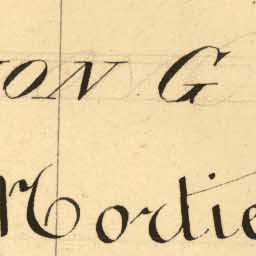 ON G
Mortie